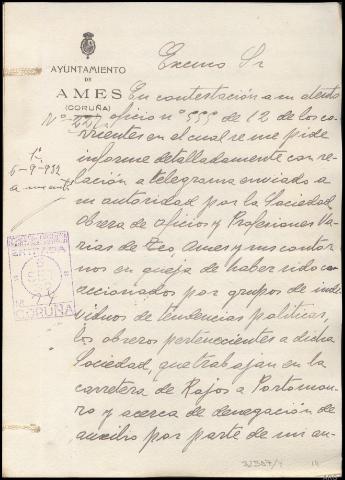 Excmo Sr
AYUNTAMIENTO
DE
AMES
(CORUÑA)
En contestación a su atento
Nº 227 oficio nº 999 de 12 de los co-
rrientes en el cual se me pide
informe detalladamente con re-
lación a telegrama enviado a
su autoridad por la Sociedad
Obrera de oficios y Profesiones Va-
rias de Teo, Ames y sus contor-
nos en queja de haber sido co-
accionados por grupos de indi-
viduos de tendencias politicas,
los obreros pertenecientes a dicha
Sociedad, que trabajan en la
carretera de Rojos a Portomou-
ro y acerca de denegación de
auxilio por parte de mi au-
6-9-932
CORUÑA
32387/4
14